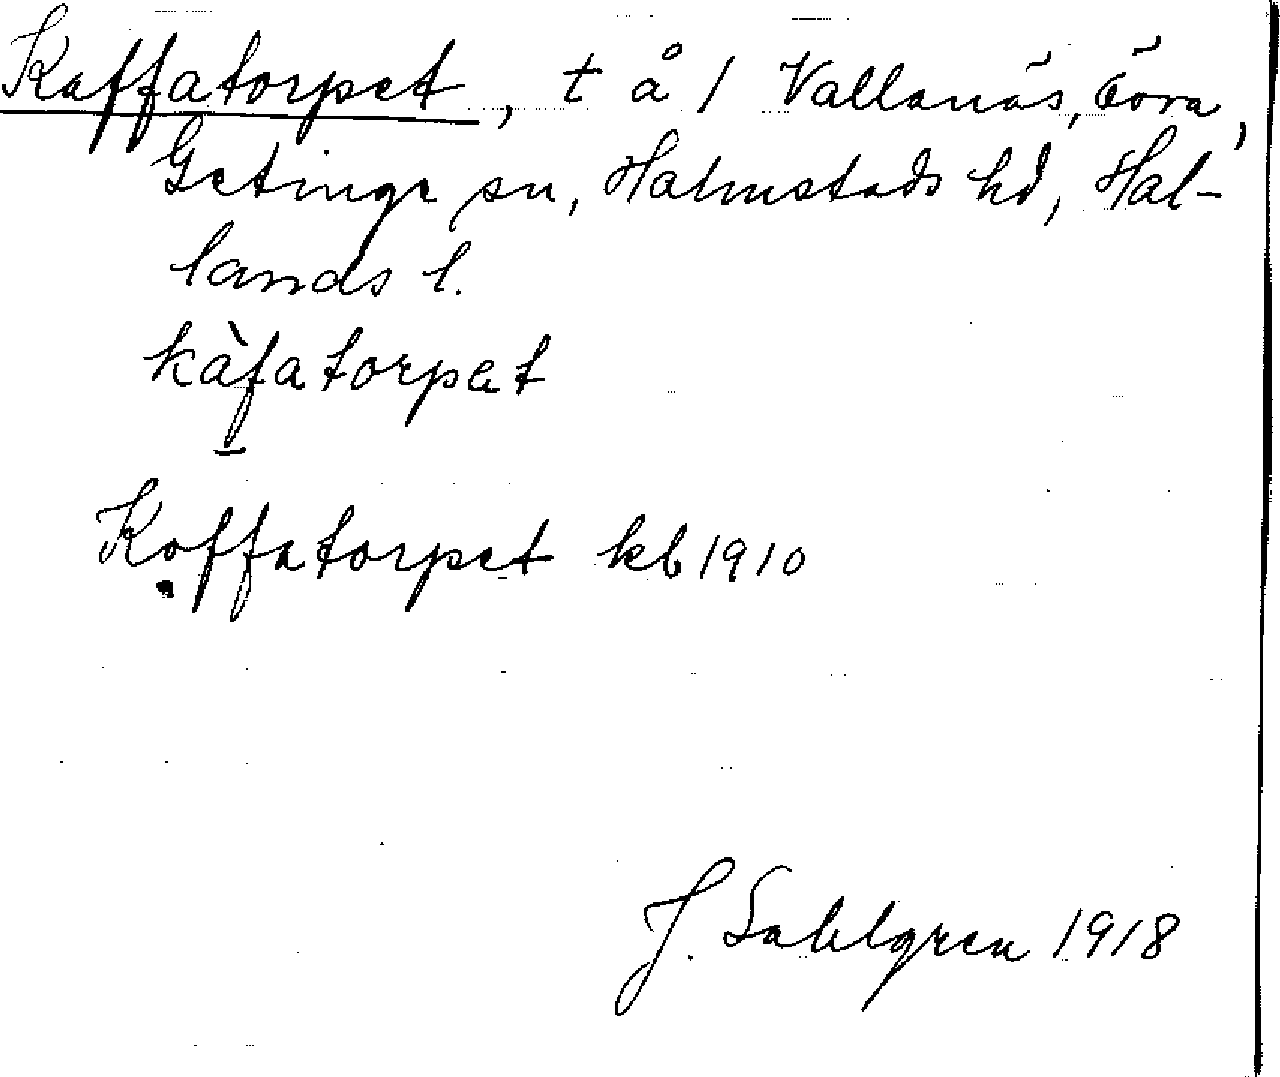 Kaffatorpet, t å 1 Vallanäs, Övra,
Getinge sn, Halmstads hd, Hal-
lands l.
kàfatorpet
Koffatorpet kb 1910
J. Sahlgren 1918